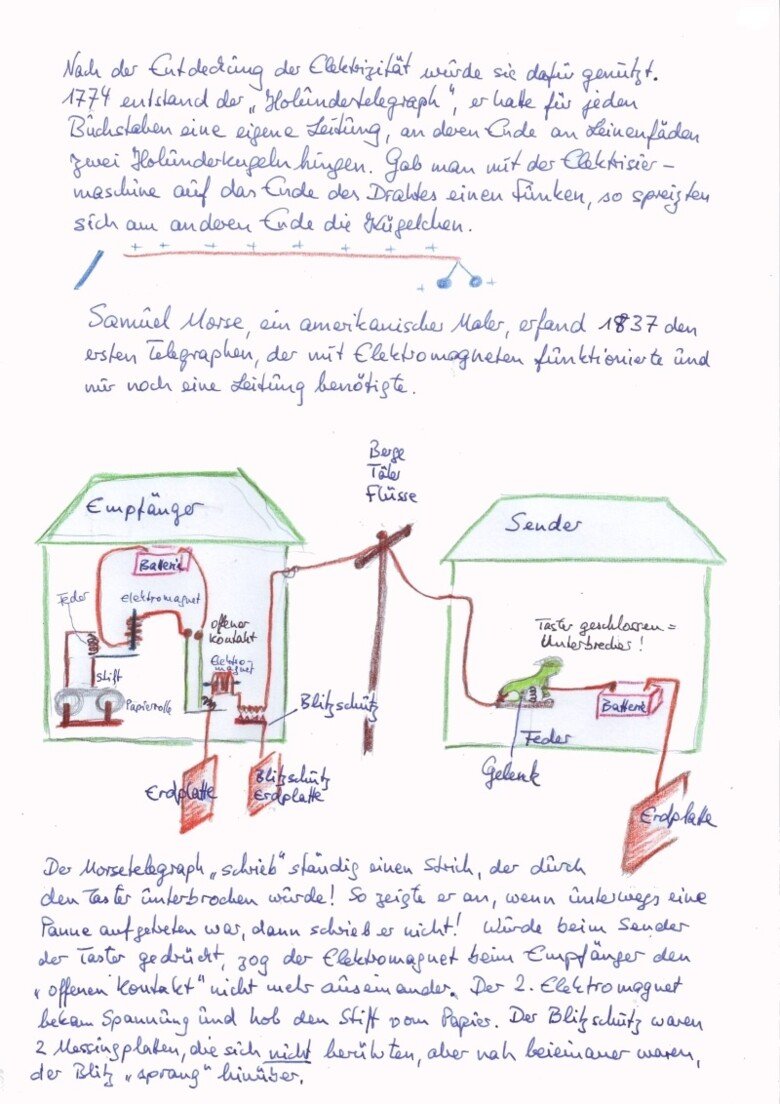 Nach der Entdeckung der Elektrizität wurde sie dafür genutzt.
1774 entstand der „Holundertelegraph", er hatte für jeden
Buchstaben eine eigene Leitung, an deren Ende an Leinenfäden
zwei Holunderkugeln hingen. Gab man mit der Elektrisier-
maschine auf das Ende des Drahtes einen Funken, so spreizten
sich am anderen Ende die Kügelchen.
+ + + + + + + +
+ +
Samuel Morse, ein amerikanischer Maler, erfand 1837 den
ersten Telegraphen, der mit Elektromagneten funktionierte und
nur noch eine Leitung benötigte.
Berge
Täler
Flüsse
Empfänger
Sender
Batterie
Feder
Elektromagnet
offener
Kontakt
Elektro-
magnet
Stift
Papierrolle
Blitzschutz
Taster geschlossen =
Unterbrecher!
Batterie
Feder
Gelenk
Erdplatte
Blitzschutz
Erdplatte
Erdplatte
Der Morsetelegraph „schrieb" ständig einen Strich, der durch
den Taster unterbrochen wurde! So zeigte er an, wenn unterwegs eine
Panne aufgetreten war, dann schrieb er nicht! Wurde beim Sender
der Taster gedrückt, zog der Elektromagnet beim Empfänger den
„offenen Kontakt" nicht mehr auseinander. Der 2. Elektromagnet
bekam Spannung und hob den Stift vom Papier. Der Blitzschutz waren
2 Messingplatten, die sich nicht berührten, aber nah beieinaner waren,
der Blitz „sprang" hinüber.